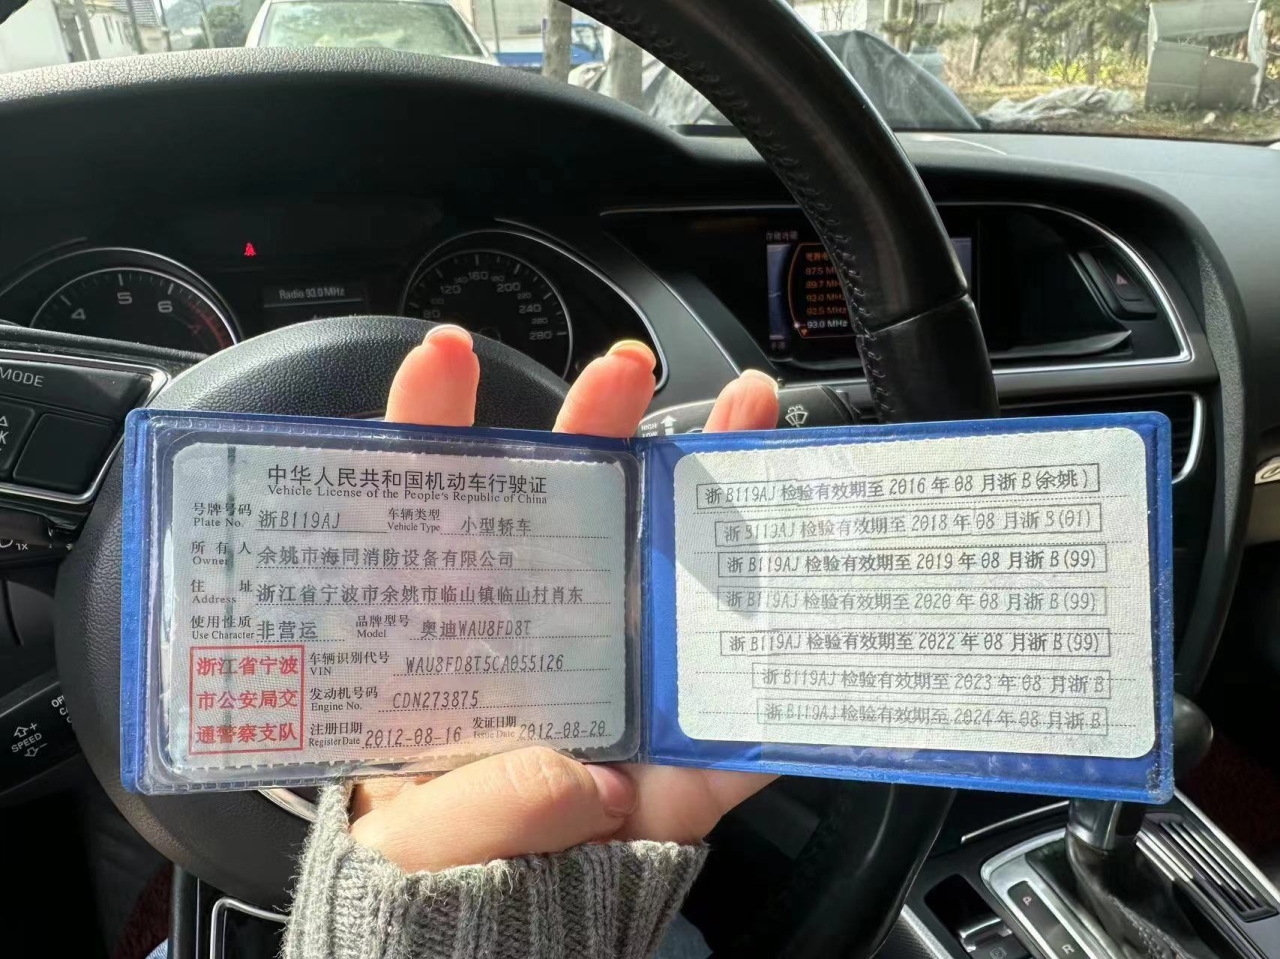 中华人民共和国机动车行驶证
Vehicle License of the People's Republic of China
号牌号码 浙B119AJ 车辆类型 小型轿车
Plate No. Vehicle Type
所有人 余姚市海同消防设备有限公司
Owner
住址 浙江省宁波市余姚市临山镇临山村肖东
Address
使用性质 非营运 品牌型号 奥迪WAU8FD8T
Use Character Model
浙江省宁波
市公安局交
通警察支队
车辆识别代号 WAU8FD8T5CA055126
VIN
发动机号码 CDN273875
Engine No.
注册日期 2012-08-16 发证日期 2012-08-20
Register Date Issue Date
浙B119AJ检验有效期至2016年08月浙B(余姚)
浙B119AJ检验有效期至2018年08月浙B(01)
浙B119AJ检验有效期至2019年08月浙B(99)
浙B119AJ检验有效期至2020年08月浙B(99)
浙B119AJ检验有效期至2022年08月浙B(99)
浙B119AJ检验有效期至2023年08月浙B
浙B119AJ检验有效期至2024年08月浙B
Radio 93.0 MHz
4 5 6
120 160 200
220
240
260
280
87.5 M
89.7 MH
92.0 MH
92.5 MH
93.0 MHz
MODE
HIGH
LOW
1x
OFF
SPEED
P
R